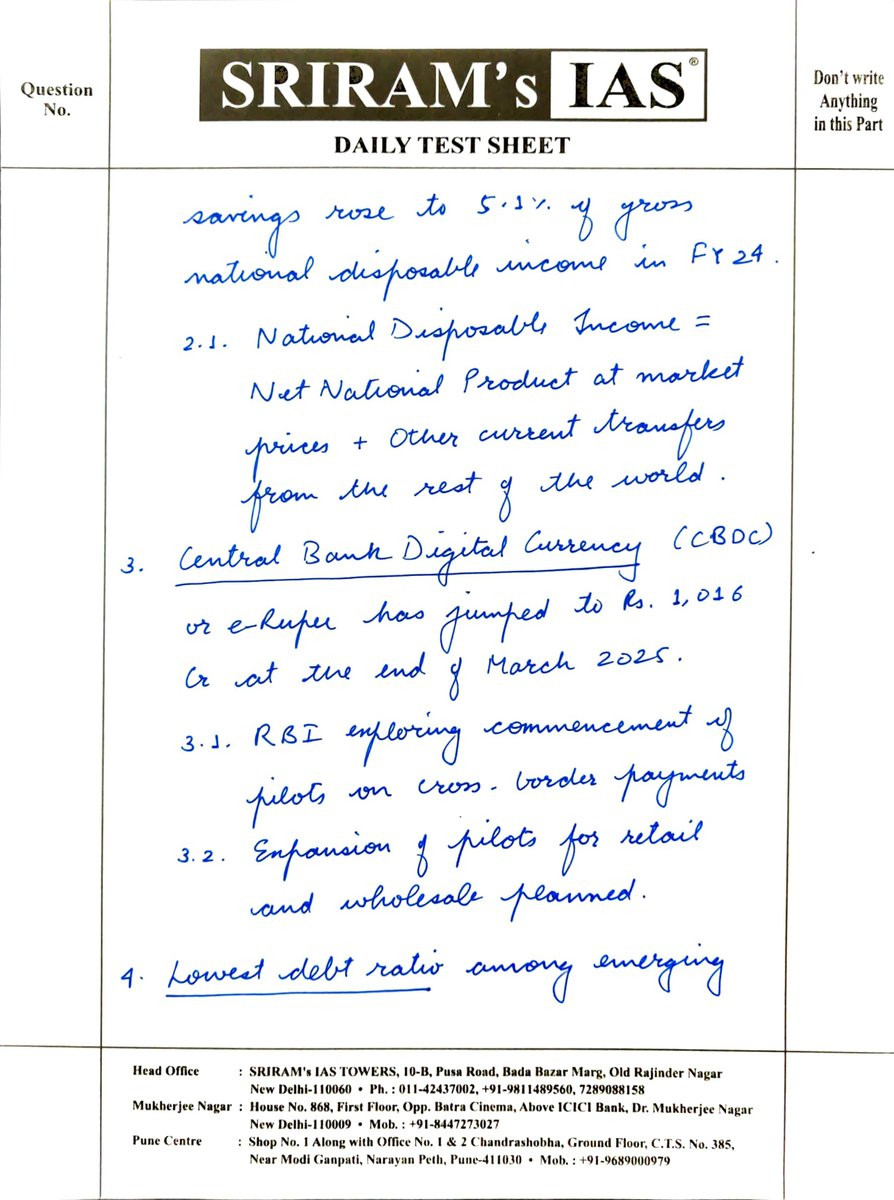 Question
No.
SRIRAM's IAS®
DAILY TEST SHEET
Don't write
Anything
in this Part
savings rose to 5.1% of gross
national disposable income in FY 24.
2.1. National Disposable Income =
Net National Product at market
prices + Other current transfers
from the rest of the world.
3. Central Bank Digital Currency (CBDC)
or e-Rupee has jumped to Rs. 1,016
Cr at the end of March 2025.
3.1. RBI exploring commencement of
pilots on cross-border payments
3.2. Expansion of pilots for retail
and wholesale planned.
4. Lowest debt ratio among emerging
Head Office : SRIRAM's IAS TOWERS, 10-B, Pusa Road, Bada Bazar Marg, Old Rajinder Nagar
New Delhi-110060 • Ph. : 011-42437002, +91-9811489560, 7289088158
Mukherjee Nagar : House No. 868, First Floor, Opp. Batra Cinema, Above ICICI Bank, Dr. Mukherjee Nagar
New Delhi-110009 • Mob. : +91-8447273027
Pune Centre : Shop No. 1 Along with Office No. 1 & 2 Chandrashobha, Ground Floor, C.T.S. No. 385,
Near Modi Ganpati, Narayan Peth, Pune-411030 • Mob. : +91-9689000979